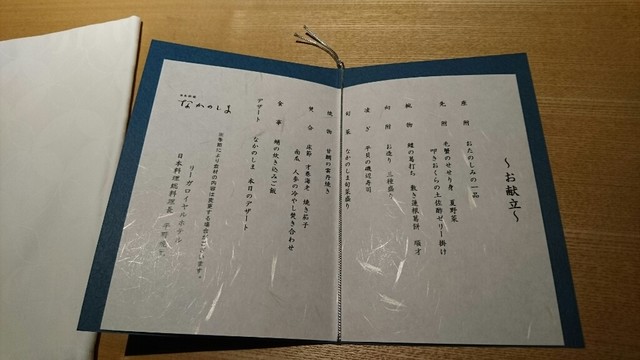 ～お献立～
座附 おたのしみの一品
先附 毛蟹のせせり身 夏野菜
叩きおくらの土佐酢ゼリー掛け
椀物 鱧の葛打ち 敷き蓮根葛餅
向附 お造り 三種盛り
凌ぎ 平目の磯辺寿司
旬菜 なかのしま旬菜盛り
焼物 甘鯛の雲丹焼き
焚合 才巻海老 焼き茄子
南瓜 人参の冷やし焚き合わせ
食事 鱧の炊き込みご飯
デザート なかのしま 本日のデザート
日本料理
なかのしま
※季節により食材の内容は変更する場合がございます。
リーガロイヤルホテル
日本料理総料理長